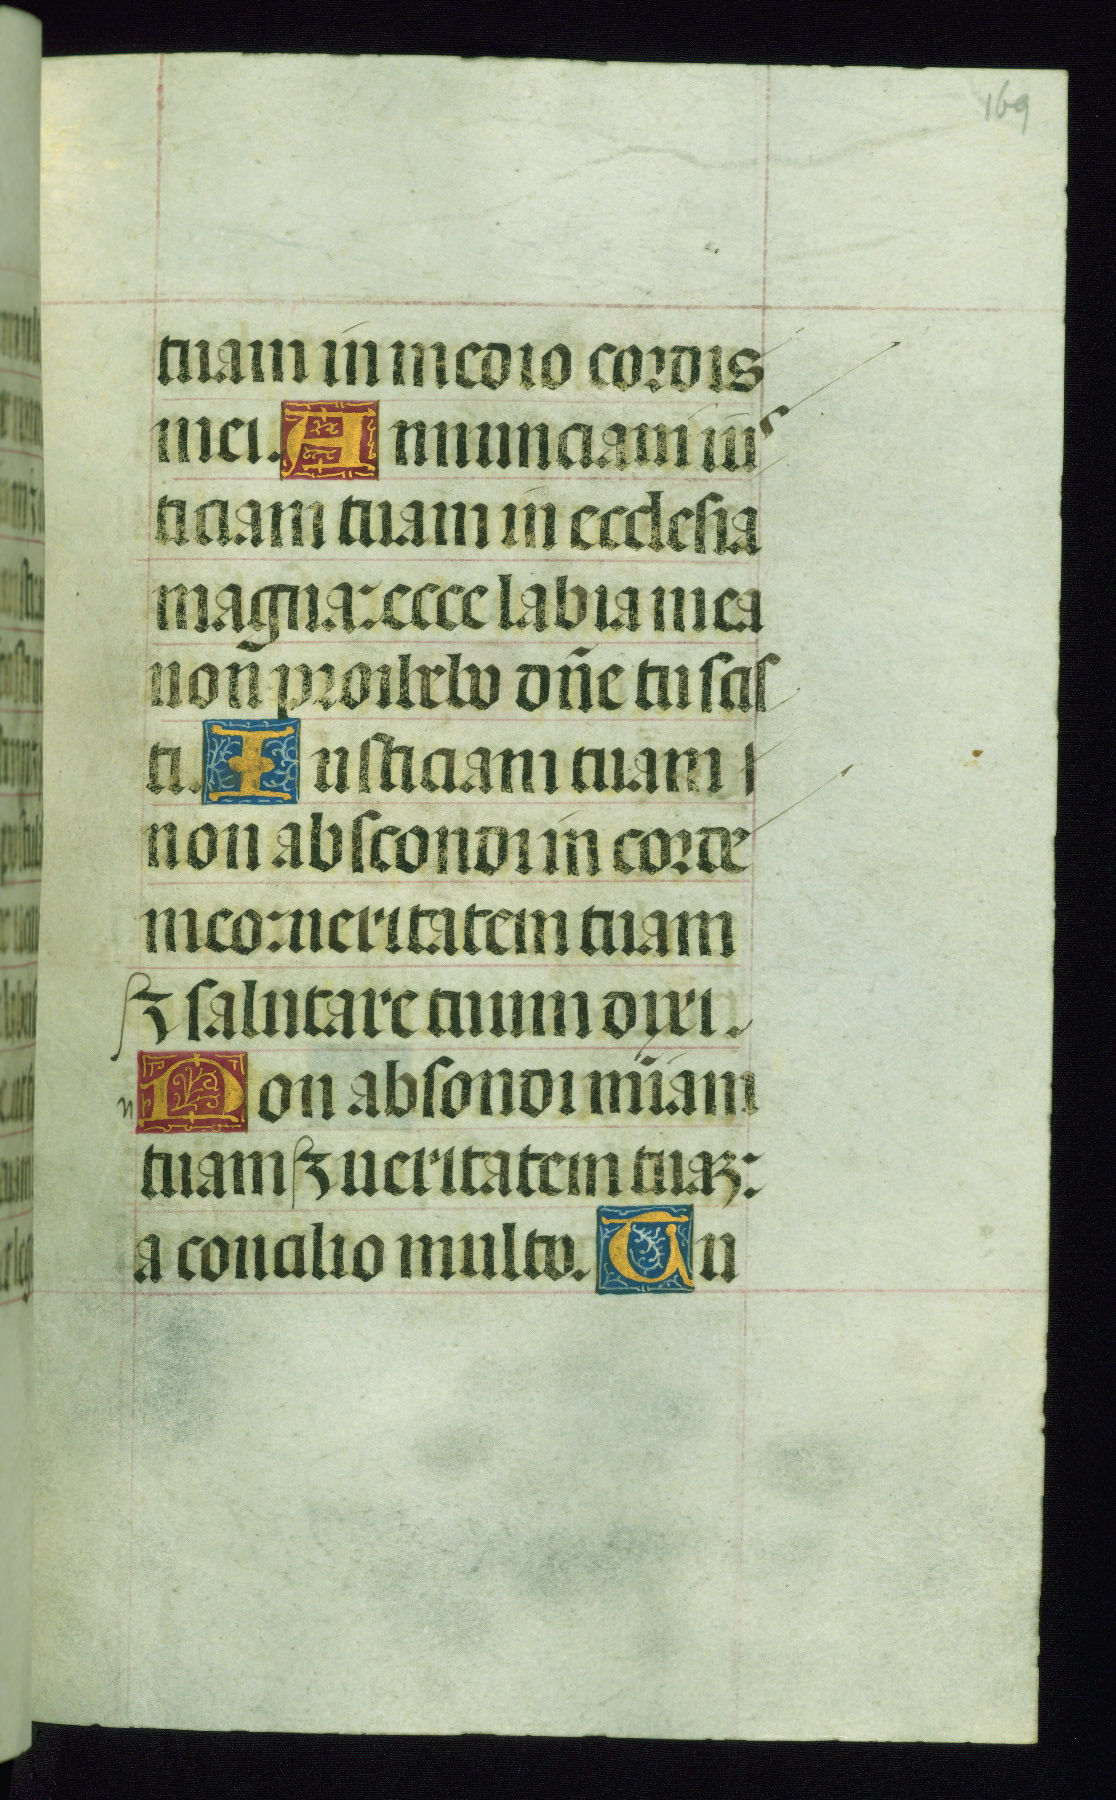 169
tuam in medio cordis
mei. Annunciam ius
ticiam tuam in ecclesia
magna: ecce labia mea
non̄ proilxbo dn̄e tu scis
ti. Iusticiam tuam
non abscondi in corde
meo: ueritatem tuam
⁊ salutare tuum dixi.
Non absondi mīam
tuam ⁊ ueritatem tuaꝫ:
a concilio multo. Tu